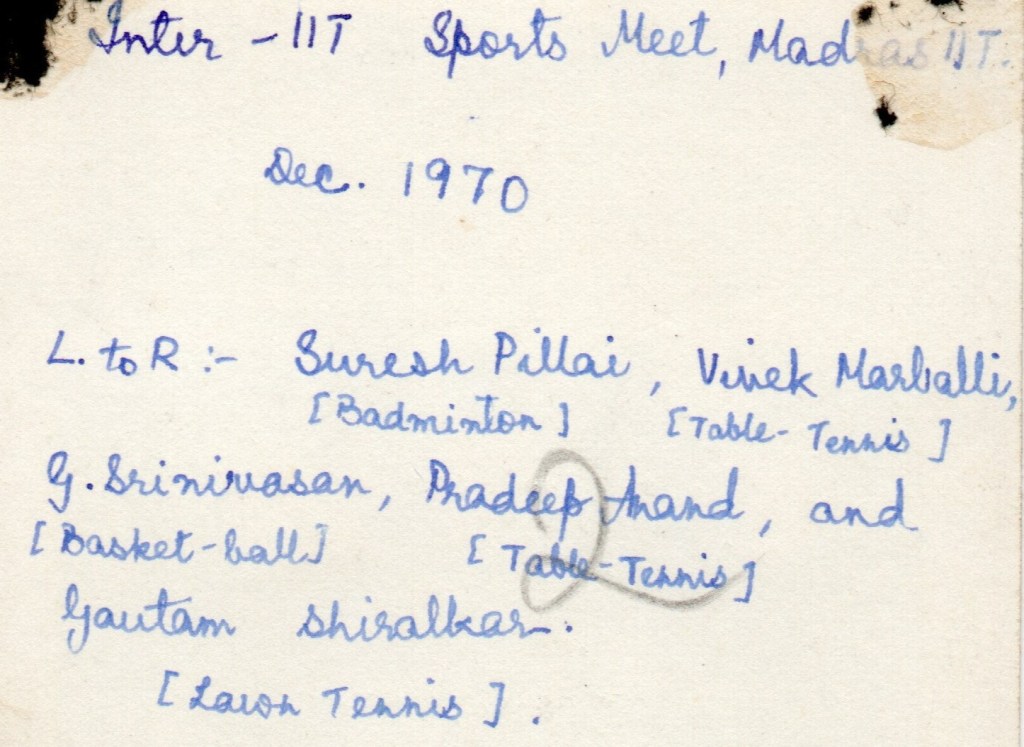 Inter - IIT Sports Meet, Madras IIT.
Dec. 1970
L. to R :- Suresh Pillai, Vivek Marballi,
[Badminton] [Table-Tennis]
G. Srinivasan, Pradeep Anand, and
[Basket-ball] [Table-Tennis]
Gautam Shiralkar.
[Lawn Tennis].
2